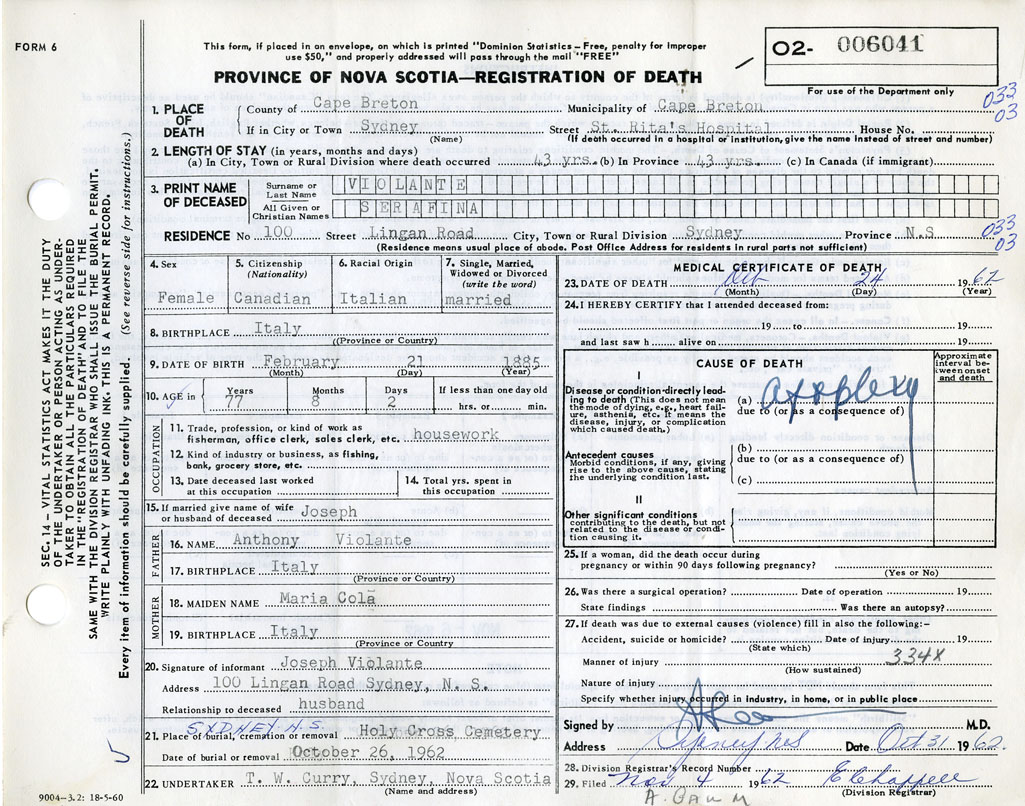 FORM 6
This form, if placed in an envelope, on which is printed "Dominion Statistics – Free, penalty for improper
use $50," and properly addressed will pass through the mail "FREE"
PROVINCE OF NOVA SCOTIA—REGISTRATION OF DEATH
02- 006041
For use of the Department only
033
03
1. PLACE OF DEATH
County of Cape Breton Municipality of Cape Breton
If in City or Town Sydney Street St. Rita's Hospital House No.
(Name) (If death occurred in a hospital or institution, give the name instead of street and number)
2. LENGTH OF STAY (in years, months and days)
(a) In City, Town or Rural Division where death occurred 43 yrs. (b) In Province 43 yrs. (c) In Canada (if immigrant)
3. PRINT NAME OF DECEASED
Surname or Last Name VIOLANTE
All Given or Christian Names SERAFINA
RESIDENCE No 100 Street Lingan Road City, Town or Rural Division Sydney Province N.S
(Residence means usual place of abode. Post Office Address for residents in rural parts not sufficient)
033
03
4. Sex
Female
5. Citizenship
(Nationality)
Canadian
6. Racial Origin
Italian
7. Single, Married,
Widowed or Divorced
(write the word)
married
8. BIRTHPLACE Italy
(Province or Country)
9. DATE OF BIRTH February 21 1885
(Month) (Day) (Year)
10. AGE in
Years Months Days If less than one day old
77 8 2 hrs. or min.
OCCUPATION
11. Trade, profession, or kind of work as
fisherman, office clerk, sales clerk, etc. housework
12. Kind of industry or business, as fishing,
bank, grocery store, etc.
13. Date deceased last worked
at this occupation
14. Total yrs. spent in
this occupation
15. If married give name of wife
or husband of deceased Joseph
FATHER
16. NAME Anthony Violante
17. BIRTHPLACE Italy
(Province or Country)
MOTHER
18. MAIDEN NAME Maria Cola
19. BIRTHPLACE Italy
(Province or Country)
20. Signature of informant Joseph Violante
Address 100 Lingan Road Sydney, N. S.
Relationship to deceased husband
SYDNEY N.S.
21. Place of burial, cremation or removal Holy Cross Cemetery
Date of burial or removal October 26, 1962
22. UNDERTAKER T. W. Curry, Sydney, Nova Scotia
(Name and address)
MEDICAL CERTIFICATE OF DEATH
23. DATE OF DEATH Oct 24 1962
(Month) (Day) (Year)
24. I HEREBY CERTIFY that I attended deceased from:
19 to 19
and last saw h alive on 19
CAUSE OF DEATH
Approximate
interval be-
tween onset
and death
I
Disease or condition directly lead-
ing to death (This does not mean
the mode of dying, e.g., heart fail-
ure, asthenia, etc. It means the
disease, injury, or complication
which caused death.)
(a) apoplexy
due to (or as a consequence of)
Antecedent causes
Morbid conditions, if any, giving
rise to the above cause, stating
the underlying condition last.
(b)
due to (or as a consequence of)
(c)
II
Other significant conditions
contributing to the death, but not
related to the disease or condi-
tion causing it.
25. If a woman, did the death occur during
pregnancy or within 90 days following pregnancy?
(Yes or No)
26. Was there a surgical operation? Date of operation 19
State findings Was there an autopsy?
27. If death was due to external causes (violence) fill in also the following:–
Accident, suicide or homicide? Date of injury 19
(State which)
334X
Manner of injury
(How sustained)
Nature of injury
Specify whether injury occurred in industry, in home, or in public place
Signed by M.D.
Address Sydney NS Date Oct 31 1962.
28. Division Registrar's Record Number
29. Filed Nov 4 1962 E Chappell
(Division Registrar)
SEC. 14 – VITAL STATISTICS ACT MAKES IT THE DUTY
OF THE UNDERTAKER OR PERSON ACTING AS UNDER-
TAKER TO OBTAIN ALL THE PARTICULARS REQUIRED
IN THE "REGISTRATION OF DEATH" AND TO FILE THE
SAME WITH THE DIVISION REGISTRAR WHO SHALL ISSUE THE BURIAL PERMIT.
WRITE PLAINLY WITH UNFADING INK. THIS IS A PERMANENT RECORD.
Every item of information should be carefully supplied. (See reverse side for instructions.)
9004–3.2: 18-5-60